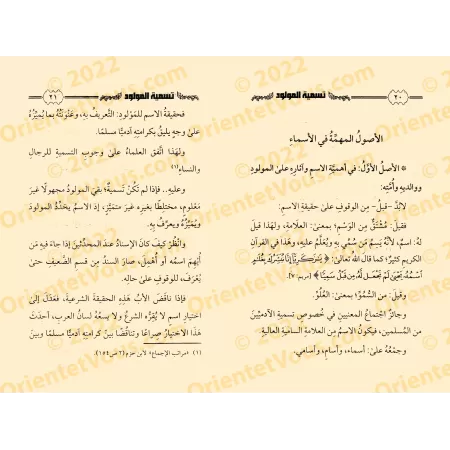 ٢٠
تسمية المولود
الأصولُ المهمَّةُ في الأسماءِ
* الأصلُ الأوَّلُ: في أهميَّةِ الاسمِ وآثارِهِ على المولودِ
ووالديهِ وأُمَّتِهِ:
لابُدَّ -قبلُ- مِن الوقوفِ على حقيقةِ الاسمِ:
فقيلَ: مُشْتَقٌّ مِن الوَسمِ؛ بمعنى: العلامةِ، ولهذا قيلَ
لهُ: اسمٌ، لأنَّهُ يَسِمُ مَن سُمِّيَ بهِ ويُعَلَّمُ عليهِ، وهذا في القرآنِ
الكريمِ كثيرٌ؛ كما قالَ اللهُ تعالى: ﴿يَـٰزَكَرِيَّآ إِنَّا نُبَشِّرُكَ بِغُلَـٰمٍ
ٱسْمُهُۥ يَحْيَىٰ لَمْ نَجْعَل لَّهُۥ مِن قَبْلُ سَمِيًّا﴾ [مريم: ٧].
وقيلَ: من السُّمُوِّ؛ بمعنى: العُلُوِّ.
وجائزٌ اجتماعُ المعنيينِ في خُصوصِ تسميةِ الآدميِّينَ
من المُسلمين، فيكونُ الاسمُ مِن العلامةِ الساميةِ العاليةِ.
وجمْعُهُ على: أسماء، وأسامٍ، وأسامي.
تسمية المولود
٢١
فحقيقةُ الاسمِ للمَوْلودِ: التَّعريفُ بهِ، وعَنْوَنَتُهُ بما يُمَيِّزُهُ
على وجهٍ يليقُ بكرامتِهِ آدميًّا مسلمًا.
ولهذا اتَّفق العلماءُ على وجوبِ التسميةِ للرجالِ
والنساءِ(١)
وعليهِ.. فإذا لم تكُنْ تَسميةٌ؛ بقيَ المولودُ مجهولًا غيرَ
مَعْلومٍ، مختلِطًا بغيرِهِ غيرَ متميِّزٍ، إذ الاسمُ يحدِّدُ المولودَ
ويُمَيِّزُهُ ويعرِّفُ بهِ.
وانْظُر كيفَ كانَ الإسنادُ عندَ المحدِّثينَ إذا جاءَ فيهِ مَن
أُبْهِمَ اسمُه أو أُهْمِلَ، صارَ السندُ مِن قسمِ الضَّعيفِ حتى
يُعْرَفَ، للوقوفِ على حالِهِ.
فإذا ناقضَ الأبُ هذهِ الحقيقةَ الشرعيةَ، فعَدَلَ إلى
اختيارِ اسمٍ لا يُقِرُّه الشرعُ ولا يسعُهُ لسانُ العربِ، أحدَثَ
هذا الاختيارُ صِراعًا وتناقُضًا بينَ كرامتِهِ آدميًّا مسلمًا وبينَ
(١) «مراتب الإجماع» لابن حزم (ص ١٥٤).
© 2022
OrientetVous.com